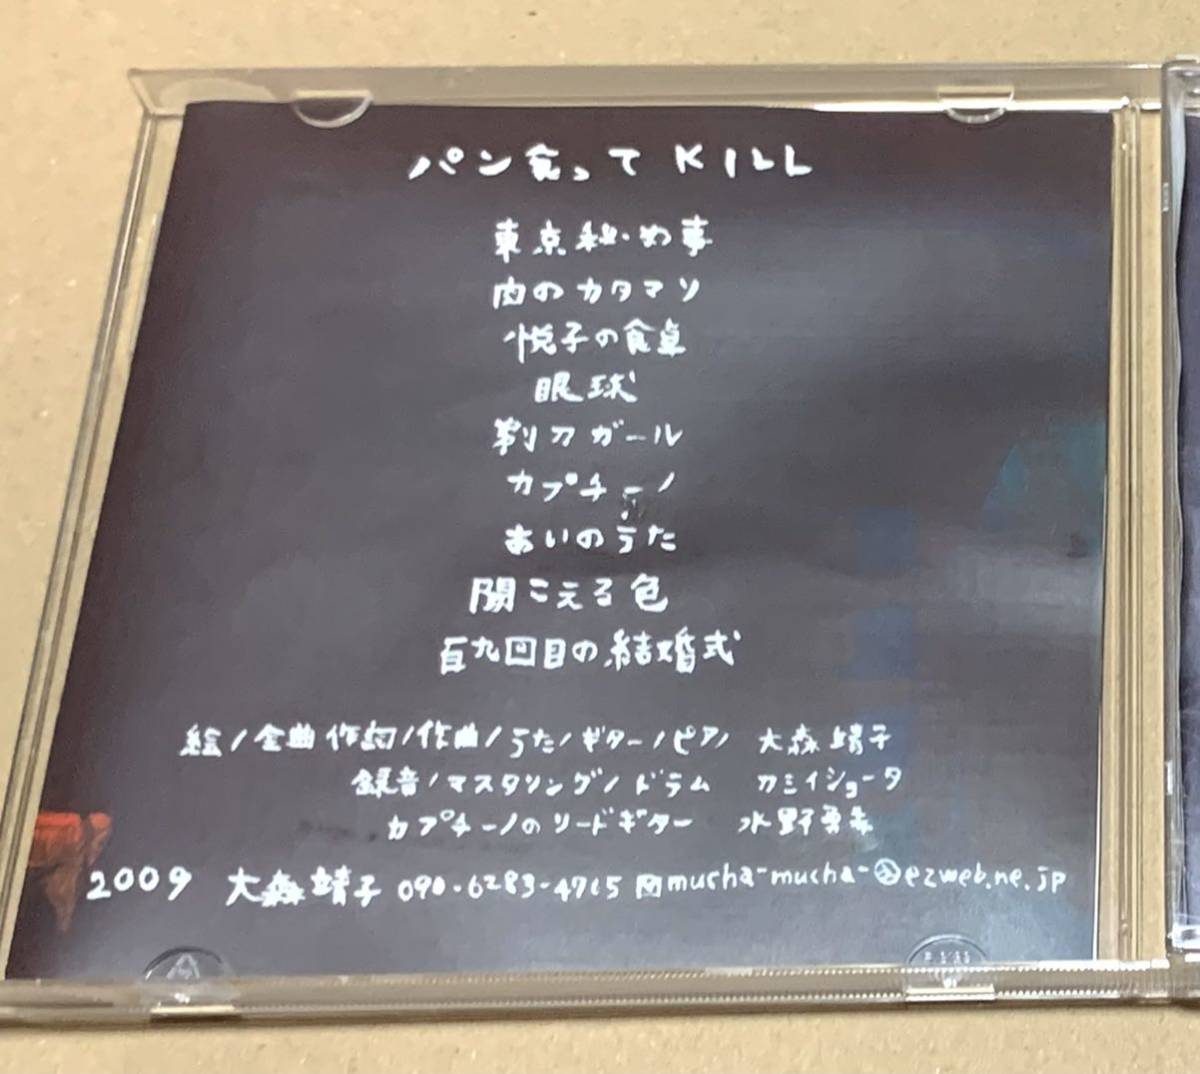 パン食って KILL
東京秘め事
肉のカタマリ
悦子の食卓
眼球
剃刀ガール
カプチーノ
あいのうた
聞こえる色
百九回目の結婚式
絵/全曲作詞/作曲/うた/ギター/ピアノ 大森靖子
録音/マスタリング/ドラム カミイショータ
カプチーノのリードギター 水野
2009 大森靖子 090-6283-4765 mucha-mucha-@ezweb.ne.jp